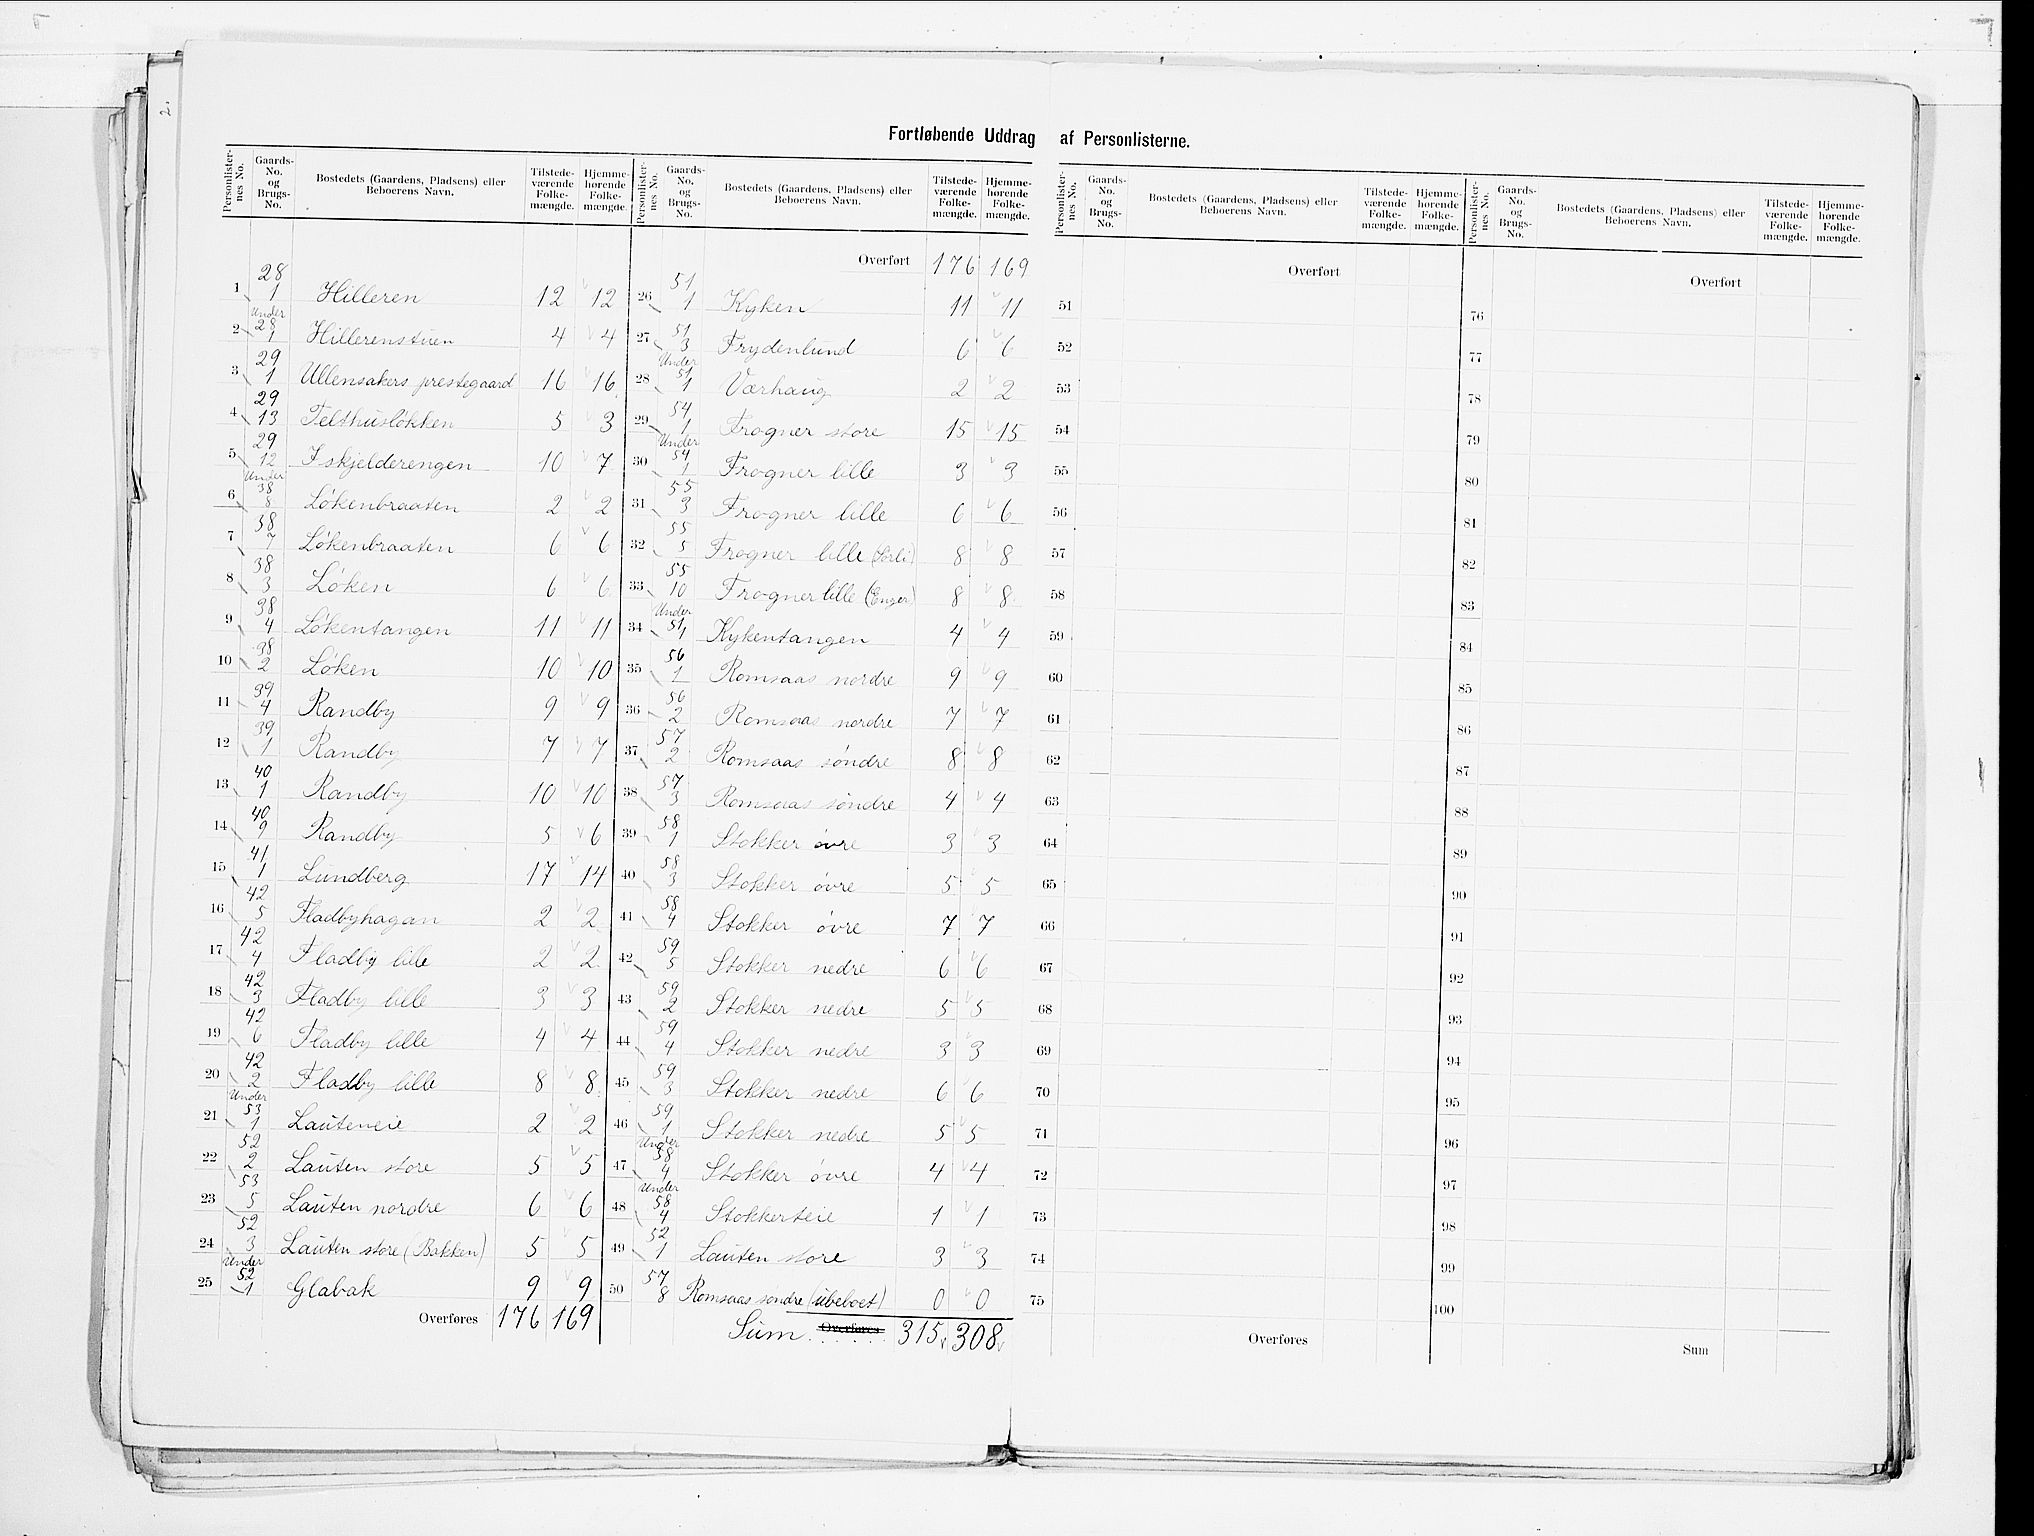 Fortløbende Uddrag af Personlisterne.
Personlisternes No. Gaards-No. og Brugs-No. Bostedets (Gaardens, Pladsens) eller Beboerens Navn. Tilstedeværende Folkemængde. Hjemmehørende Folkemængde.
1 28/1 Hilleren 12 12
2 Under 28/1 Hillerenstuen 4 4
3 29/1 Ullensakers prestegaard 16 16
4 29/13 Telthusløkken 5 3
5 29/12 Iskjelderengen 10 7
6 Under 38/8 Løkenbraaten 2 2
7 38/7 Løkenbraaten 6 6
8 38/3 Løken 6 6
9 38/4 Løkentangen 11 11
10 38/2 Løken 10 10
11 39/4 Randby 9 9
12 39/1 Randby 7 7
13 40/1 Randby 10 10
14 40/9 Randby 5 6
15 41/1 Lundberg 17 14
16 42/5 Fladbyhagan 2 2
17 42/4 Fladby lille 2 2
18 42/3 Fladby lille 3 3
19 42/6 Fladby lille 4 4
20 42/2 Fladby lille 8 8
21 Under 53/1 Lauteneie 2 2
22 52/2 Lauten store 5 5
23 53/5 Lauten nordre 6 6
24 52/3 Lauten store (Bakken) 5 5
25 Under 52/1 Glabak 9 9
Overføres 176 169
Personlisternes No. Gaards-No. og Brugs-No. Bostedets (Gaardens, Pladsens) eller Beboerens Navn. Tilstedeværende Folkemængde. Hjemmehørende Folkemængde.
Overført 176 169
26 51/1 Kyken 11 11
27 51/3 Frydenlund 6 6
28 Under 51/1 Værhaug 2 2
29 54/1 Frogner store 15 15
30 Under 54/1 Frogner lille 3 3
31 55/3 Frogner lille 6 6
32 55/5 Frogner lille (Sørli) 8 8
33 55/10 Frogner lille (Enger) 8 8
34 Under 51/1 Kykentangen 4 4
35 56/1 Romsaas nordre 9 9
36 56/2 Romsaas nordre 7 7
37 57/2 Romsaas søndre 8 8
38 57/3 Romsaas søndre 4 4
39 58/1 Stokker øvre 3 3
40 58/3 Stokker øvre 5 5
41 58/4 Stokker øvre 7 7
42 59/5 Stokker nedre 6 6
43 59/2 Stokker nedre 5 5
44 59/4 Stokker nedre 3 3
45 59/3 Stokker nedre 6 6
46 59/1 Stokker nedre 5 5
47 Under 58/4 Stokker øvre 4 4
48 Under 58/4 Stokkerteie 1 1
49 52/1 Lauten store 3 3
50 57/8 Romsaas søndre (ubeboet) 0 0
Sum Overføres 315 308
Personlisternes No. Gaards-No. og Brugs-No. Bostedets (Gaardens, Pladsens) eller Beboerens Navn. Tilstedeværende Folkemængde. Hjemmehørende Folkemængde.
Overført
51
52
53
54
55
56
57
58
59
60
61
62
63
64
65
66
67
68
69
70
71
72
73
74
75
Overføres
Personlisternes No. Gaards-No. og Brugs-No. Bostedets (Gaardens, Pladsens) eller Beboerens Navn. Tilstedeværende Folkemængde. Hjemmehørende Folkemængde.
Overført
76
77
78
79
80
81
82
83
84
85
86
87
88
89
90
91
92
93
94
95
96
97
98
99
100
Sum